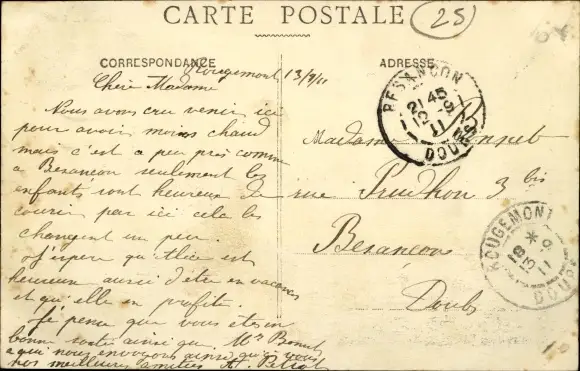 CARTE POSTALE
25
CORRESPONDANCE
ADRESSE
Rougemont 13/9/11
Chère Madame
Nous avons cru venir ici
pour avoir moins chaud
mais c'est a peu près comme
a Besançon seulement les
enfants sont heureux de
courir par ici cela les
changent un peu.
J'espère qu'Alice est
heureuse aussi d'être en vacances
et qu'elle en profite.
Je pense que vous êtes en
bonne santé ainsi que Mr Bonnet
a qui nous envoyons ainsi qu'a vous
nos meilleures amitiés
Madame Bonnet
rue Prudhon 3 bis
Besançon
Doubs
BESANÇON
21 45
12 9
11
DOUBS
ROUGEMONT
18 *
13 9
11
DOUBS